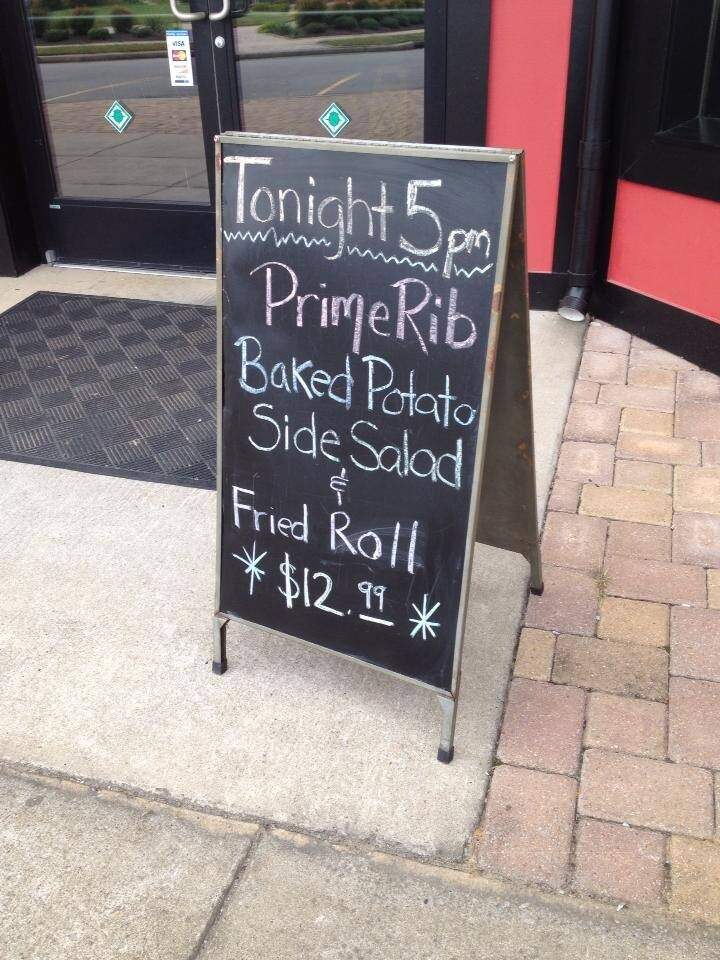 VISA
Tonight 5pm
Prime Rib
Baked Potato
Side Salad
&
Fried Roll
* $12.99 *